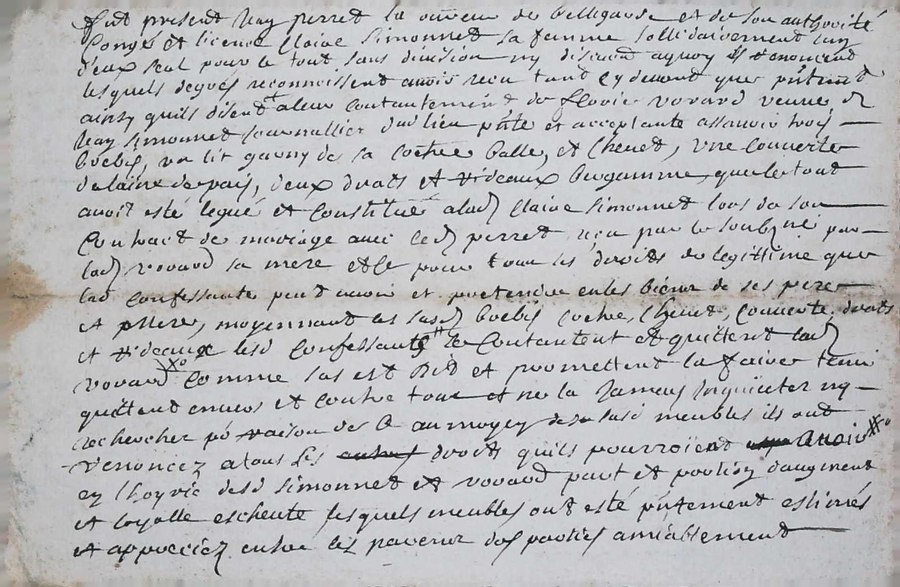 fut present Jean perret la vigneur de bellegarde et de son authorité
Congé et licence Claire Simonnet sa famme sollidairement lun
d'eux seul pour le tout sans division ny discution aquoy ils renoncent
lesquels degrés reconnoissent avoir reçu tant cy devant que pñtement
ainsy quils disent et a leur contantement de florie vovard veuve de
Jean Simonnet Journallier dud lieu pñte et acceptante assavoir trois
brebis, un lit garny de sa coche balle, et chevet, une couverte
de laine de païs, deux drats et rideaux bergamme, que le tout
avoit esté legué et constitué a lad Claire Simonnet lors de son
Contract de mariage avec led perret reçu par le soubzné par
lad vovard sa mere et ce pour tous les droits de legittime que
lad confessante peut avoir et pretendre en les biens de ses pere
et mere, moyennant les susd brebis coche, chevet, couverte, drats
et rideaux lesd confessants se contantent et quittent lad
vovard comme sus est dit et promettent la faire tenir
quitte envers et contre tous et ne la jamais inquieter ny
rechercher põ raison de ce au moyen desd susd meubles ils ont
renoncez a tous les droits quils pourroient avoir
en lhoyrie desd Simonnet et vovard part et portion daugment
et loyalle escheute lesquels meubles ont esté pñtement estimés
et appreciez entre les parties amiablement